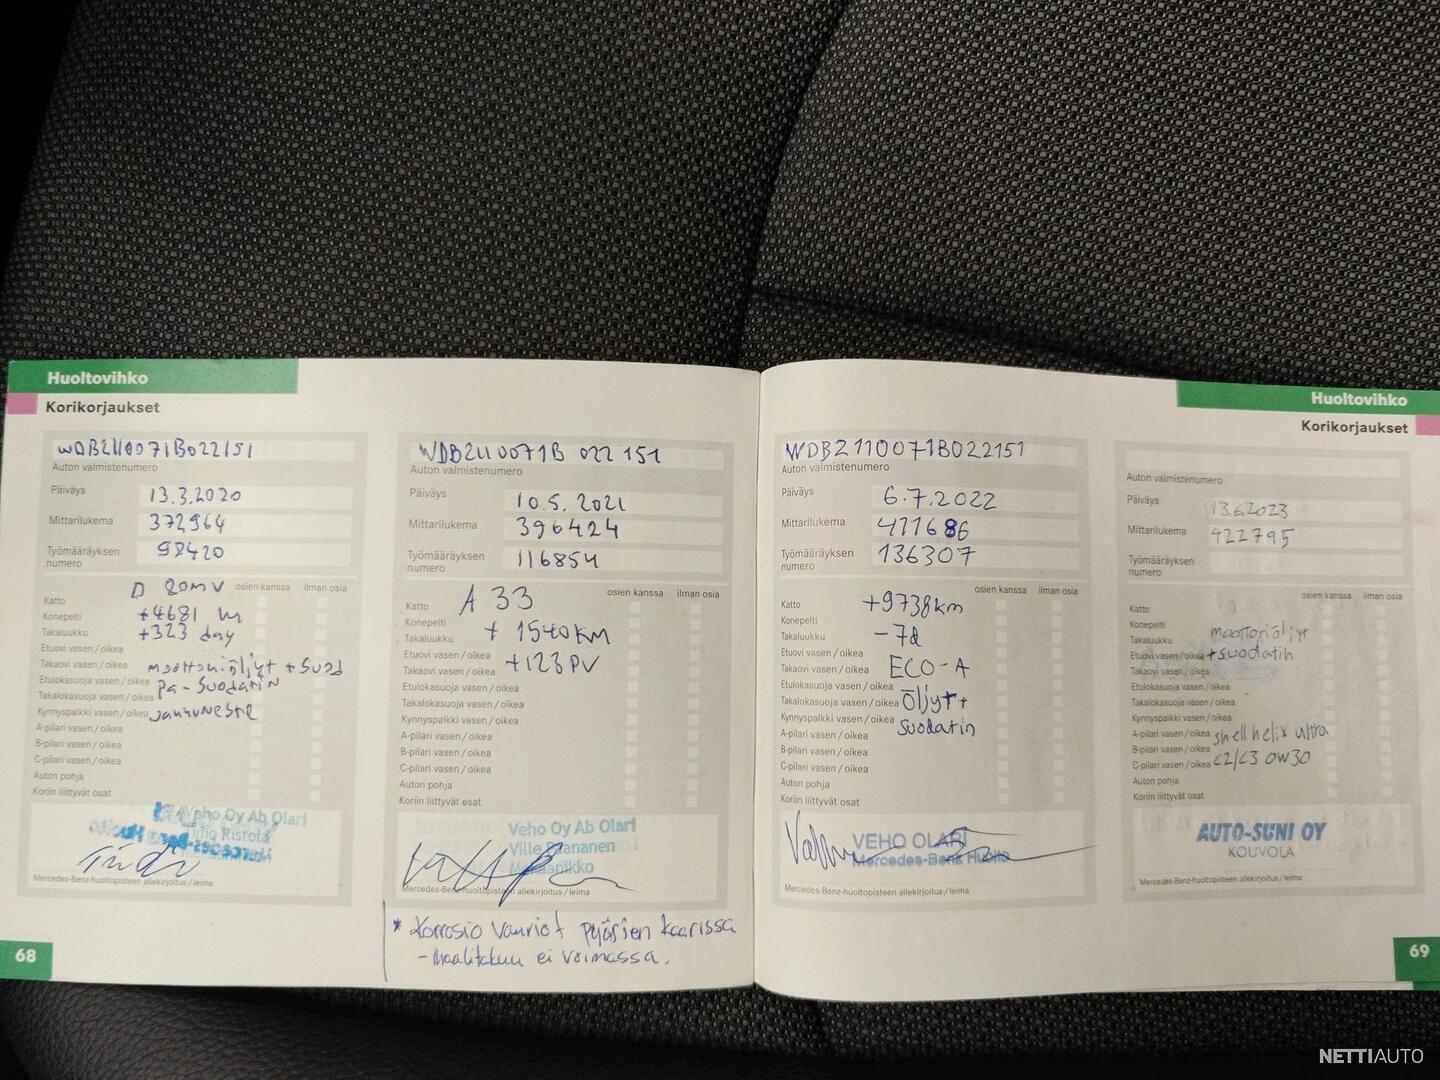 Huoltovihko
Korikorjaukset
WDB2110071B022151
Auton valmistenumero
Päiväys 13.3.2020
Mittarilukema 372964
Työmääräyksen
numero 98420
D
osien kanssa ilman osia
Katto
Konepelti +4681
Takaluukku +323 day
Etuovi vasen / oikea
Takaovi vasen / oikea moottoriöljyt + suod
Etulokasuoja vasen / oikea pa-suodatin
Takalokasuoja vasen / oikea
Kynnyspalkki vasen / oikea jarruneste
A-pilari vasen / oikea
B-pilari vasen / oikea
C-pilari vasen / oikea
Auton pohja
Koriin liittyvät osat
Veho Oy Ab Olari
Ristola
Mercedes-Benz-huoltopisteen allekirjoitus / leima
68
WDB2110071B 022 151
Auton valmistenumero
Päiväys 10.5.2021
Mittarilukema 396424
Työmääräyksen
numero 116854
A 33
osien kanssa ilman osia
Katto
Konepelti
Takaluukku + 1540KM
Etuovi vasen / oikea
Takaovi vasen / oikea +123 PV
Etulokasuoja vasen / oikea
Takalokasuoja vasen / oikea
Kynnyspalkki vasen / oikea
A-pilari vasen / oikea
B-pilari vasen / oikea
C-pilari vasen / oikea
Auton pohja
Koriin liittyvät osat
Veho Oy Ab Olari
Ville
Mercedes-Benz-huoltopisteen allekirjoitus / leima
* Korrosio vauriot pyörien kaarissa
- Maalitakuu ei voimassa.
WDB2110071B022151
Auton valmistenumero
Päiväys 6.7.2022
Mittarilukema 411686
Työmääräyksen
numero 136307
osien kanssa ilman osia
Katto +9738km
Konepelti
Takaluukku -7d
Etuovi vasen / oikea
Takaovi vasen / oikea ECO-A
Etulokasuoja vasen / oikea
Takalokasuoja vasen / oikea Öljyt+
Kynnyspalkki vasen / oikea suodatin
A-pilari vasen / oikea
B-pilari vasen / oikea
C-pilari vasen / oikea
Auton pohja
Koriin liittyvät osat
VEHO OLARI
Mercedes-Benz Huolto
Mercedes-Benz-huoltopisteen allekirjoitus / leima
Huoltovihko
Korikorjaukset
Auton valmistenumero
Päiväys 13.6.2023
Mittarilukema 422795
Työmääräyksen
numero
osien kanssa ilman osia
Katto
Konepelti
Takaluukku moottoriöljyt
Etuovi vasen / oikea +suodatin
Takaovi vasen / oikea
Etulokasuoja vasen / oikea
Takalokasuoja vasen / oikea
Kynnyspalkki vasen / oikea
A-pilari vasen / oikea shell helix ultra
B-pilari vasen / oikea
C-pilari vasen / oikea C2/C3 0W30
Auton pohja
Koriin liittyvät osat
AUTO-SUNI OY
KOUVOLA
Mercedes-Benz-huoltopisteen allekirjoitus / leima
69
NETTIAUTO